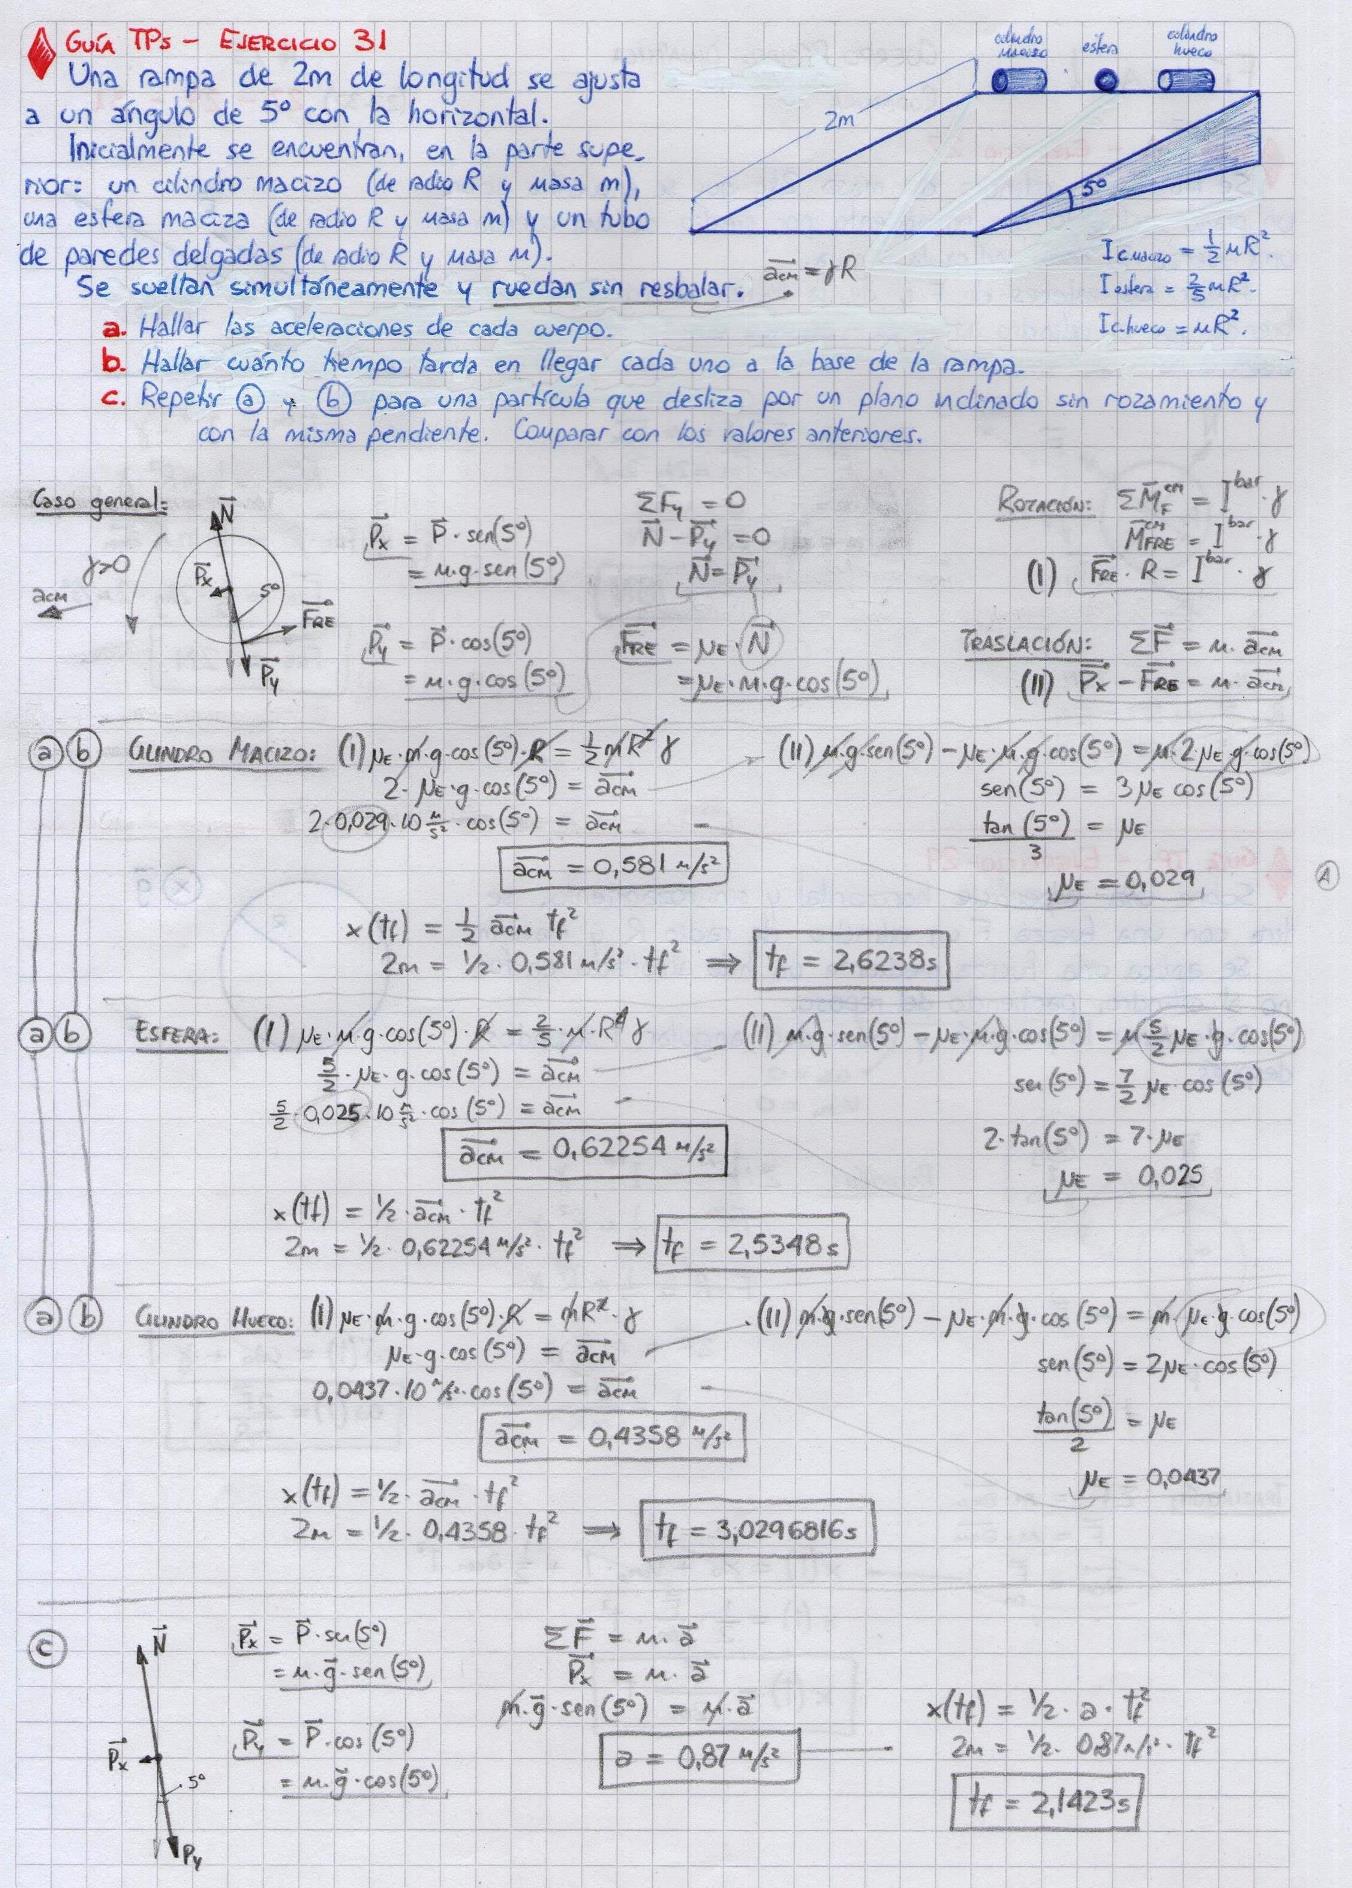 GUÍA TPs - EJERCICIO 31
Una rampa de 2m de longitud se ajusta
a un ángulo de 5° con la horizontal.
Inicialmente se encuentran, en la parte supe-
rior: un cilindro macizo (de radio R y masa m),
una esfera maciza (de radio R y masa m) y un tubo
de paredes delgadas (de radio R y masa m).
Se sueltan simultáneamente y ruedan sin resbalar.
a. Hallar las aceleraciones de cada cuerpo.
b. Hallar cuánto tiempo tarda en llegar cada uno a la base de la rampa.
c. Repetir ⓐ y ⓑ para una partícula que desliza por un plano inclinado sin rozamiento y
con la misma pendiente. Comparar con los valores anteriores.
cilindro macizo
esfera
cilindro hueco
2m
5°
acm = γR
I c.macizo = 1/2 mR².
I esfera = 2/5 mR².
I c.hueco = mR².
Caso general:
N
γ>0
acm
Px
5°
FRE
Py
Px = P · sen(5°)
= m·g·sen(5°)
Py = P · cos(5°)
= m·g·cos(5°)
ΣFy = 0
N - Py = 0
N = Py
FRE = μE · N
= μE·m·g·cos(5°)
ROTACIÓN: ΣM_F^cm = I^bar · γ
M_FRE^cm = I^bar · γ
(I) FRE · R = I^bar · γ
TRASLACIÓN: ΣF = m · acm
(II) Px - FRE = m · acm
ⓐ ⓑ CILINDRO MACIZO: (I) μE·m·g·cos(5°)·R = 1/2 mR² γ
2·μE·g·cos(5°) = acm
2·0,029·10 m/s²·cos(5°) = acm
acm = 0,581 m/s²
(II) m·g·sen(5°) - μE·m·g·cos(5°) = m·2μE·g·cos(5°)
sen(5°) = 3μE cos(5°)
tan(5°)/3 = μE
μE = 0,029
A
x(tf) = 1/2 acm tf²
2m = 1/2 · 0,581 m/s² · tf² ⇒ tf = 2,6238s
ⓐ ⓑ ESFERA: (I) μE·m·g·cos(5°)·R = 2/5·m·R² γ
5/2·μE·g·cos(5°) = acm
5/2·0,025·10 m/s²·cos(5°) = acm
acm = 0,62254 m/s²
(II) m·g·sen(5°) - μE·m·g·cos(5°) = m 5/2 μE·g·cos(5°)
sen(5°) = 7/2 μE·cos(5°)
2·tan(5°) = 7·μE
μE = 0,025
x(tf) = 1/2·acm·tf²
2m = 1/2·0,62254 m/s²·tf² ⇒ tf = 2,5348s
ⓐ ⓑ CILINDRO HUECO: (I) μE·m·g·cos(5°)·R = mR²·γ
μE·g·cos(5°) = acm
0,0437·10 m/s²·cos(5°) = acm
acm = 0,4358 m/s²
(II) m·g·sen(5°) - μE·m·g·cos(5°) = m·μE·g·cos(5°)
sen(5°) = 2μE·cos(5°)
tan(5°)/2 = μE
μE = 0,0437
x(tf) = 1/2·acm·tf²
2m = 1/2·0,4358·tf² ⇒ tf = 3,0296816s
ⓒ
N
Px
5°
Py
Px = P·sen(5°)
= m·g·sen(5°)
Py = P·cos(5°)
= m·g·cos(5°)
ΣF = m·a
Px = m·a
m·g·sen(5°) = m·a
a = 0,87 m/s²
x(tf) = 1/2·a·tf²
2m = 1/2·0,87 m/s²·tf²
tf = 2,1423s